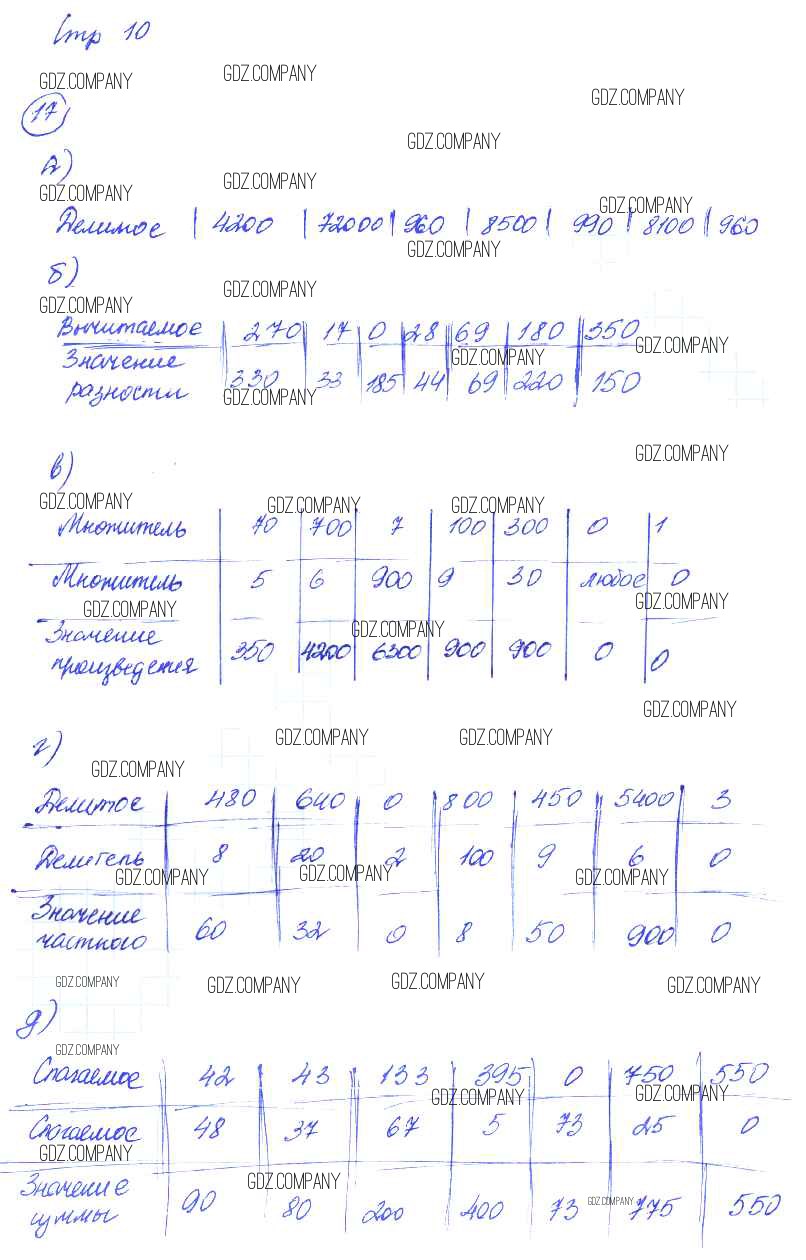 Стр 10
GDZ.COMPANY GDZ.COMPANY
GDZ.COMPANY
17
GDZ.COMPANY
а)
GDZ.COMPANY GDZ.COMPANY
GDZ.COMPANY
Делимое | 4200 | 72000 | 960 | 8500 | 990 | 8100 | 960
GDZ.COMPANY
б)
GDZ.COMPANY GDZ.COMPANY
Вычитаемое 270 17 0 28 69 180 350
GDZ.COMPANY GDZ.COMPANY
Значение
разности 330 33 185 44 69 220 150
GDZ.COMPANY
GDZ.COMPANY
в)
GDZ.COMPANY GDZ.COMPANY GDZ.COMPANY
Множитель 70 700 7 100 300 0 1
Множитель 5 6 900 9 30 любое 0
GDZ.COMPANY GDZ.COMPANY
GDZ.COMPANY
Значение
произведения 350 4200 6300 900 900 0 0
GDZ.COMPANY
г)
GDZ.COMPANY GDZ.COMPANY
GDZ.COMPANY
Делимое 480 640 0 800 450 5400 3
Делитель 8 20 2 100 9 6 0
GDZ.COMPANY GDZ.COMPANY GDZ.COMPANY
Значение
частного 60 32 0 8 50 900 0
GDZ.COMPANY GDZ.COMPANY GDZ.COMPANY GDZ.COMPANY
д)
GDZ.COMPANY
Слагаемое 42 43 133 395 0 750 550
GDZ.COMPANY GDZ.COMPANY
Слагаемое 48 37 67 5 73 25 0
GDZ.COMPANY
GDZ.COMPANY
Значение
суммы 90 80 200 400 73 775 550
GDZ.COMPANY